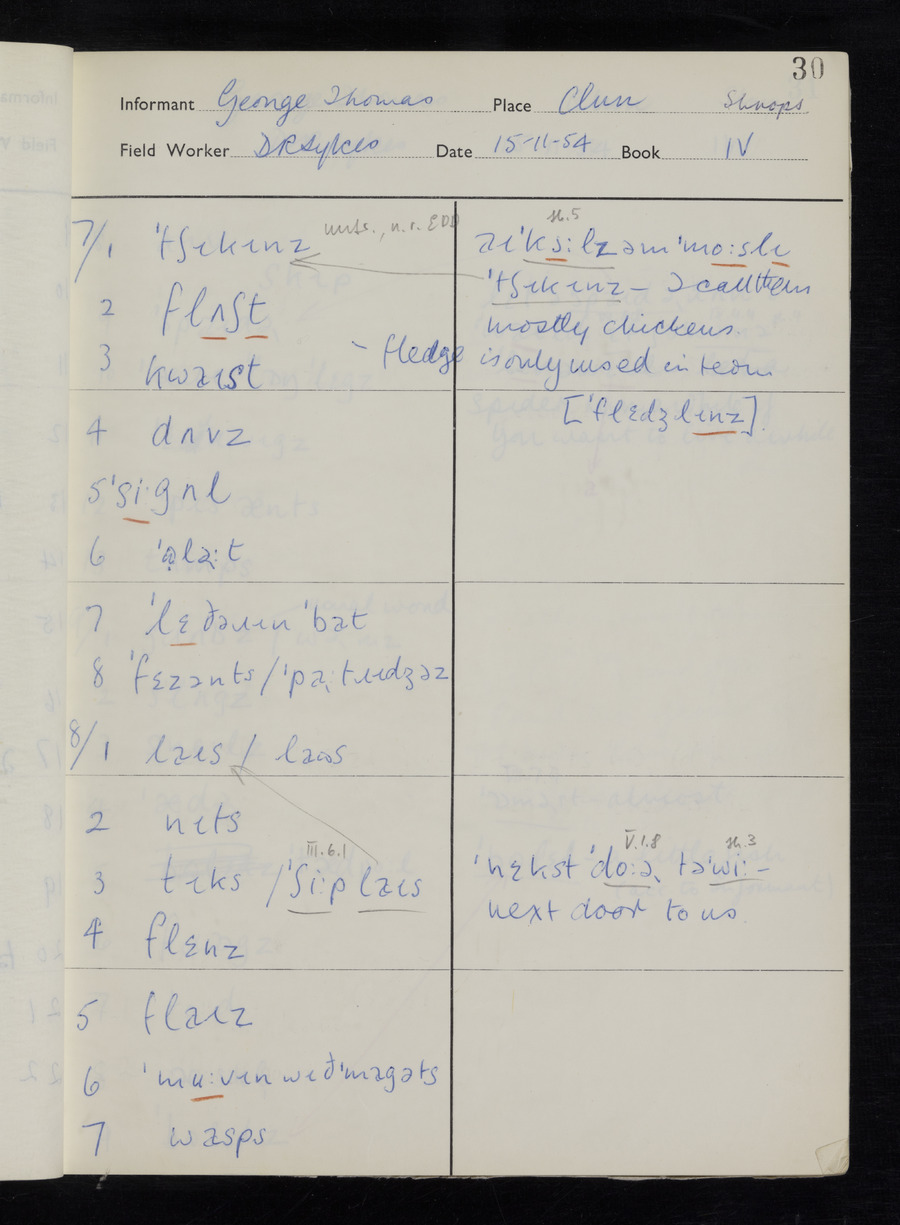 30
Informant George Thomas Place Clun Shrops
Field Worker DRSykes Date 15-11-54 Book IV
7/1 ˈtʃɪkɪnz unts., n.r. EDD
2 flʌʃt
3 kwæɪst
4 dʌvz
5 ˈsi·gnl
6 ˈəlaː:t
7 ˈlɛðəɹɪn ˈbat
8 ˈfɛzənts / ˈpaː:tɹɪdʒəz
8/1 laɪs / laʊs
2 nɪts
3 tɪks / ˈʃiːp laɪs III.6.1
4 flɛnz
5 flaɪz
6 ˈmuːvɪn wɪð ˈmagəts
7 wasps
sh.5
ˈtʃɪkɪnz – I call them
mostly chickens.
– fledge is only used in team
[ˈflɛdʒlɪnz].
V.1.8 sh.3
ˈnɛkst ˈdoːə təˈwiː –
next door to us.